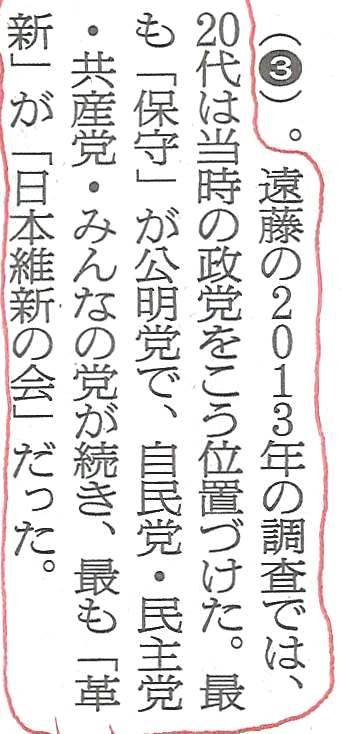 (❸)。遠藤の2013年の調査では、
20代は当時の政党をこう位置づけた。最
も「保守」が公明党で、自民党・民主党
・共産党・みんなの党が続き、最も「革
新」が「日本維新の会」だった。